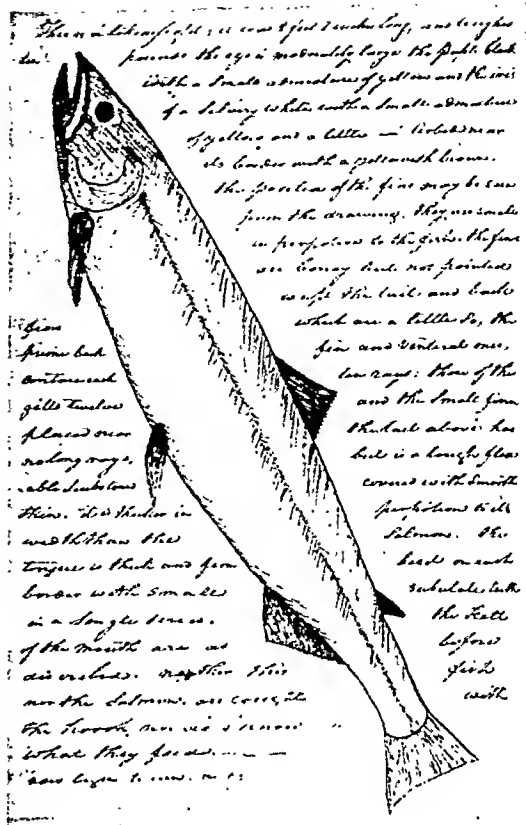 This is a likeness of it; it was 2 feet 8 inches long, and weighed
ten pounds the eye is moderately large the puple black
with a small admixture of yellow and the iris
of a silvery white with a small admixture
of yellow and a little near
its border with a yellowish brown.
the position of the fins may be seen
from the drawing, they are small
in proportion to the fish. the fins
are boney but not pointed
except the tail and back
fins which are a little so, the
prime back fin and ventral ones,
contain each ten rays; those of the
gills twelve and the small fin
placed near the tail above has
no long rays, but is a tough flex
able substance covered with smooth
skin. it is thicker in proportion to it's
width than the salmon. the
tongue is thick and firm beset on each
border with small subulate teeth
in a single series. the teeth
of the mouth are as before
discribed. neither this fish
nor the salmon are caught with
the hook, nor do I know
what they feed.
now begin to run